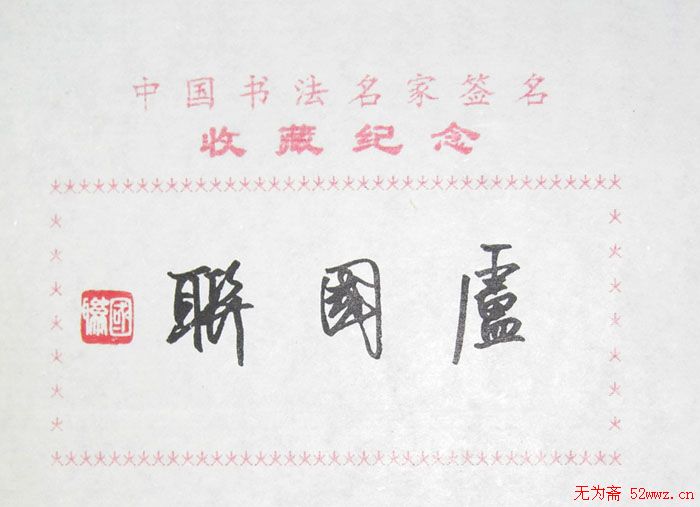 中国书法名家签名
收藏纪念
盧國聯
國聯
无为斋 52wwz.cn